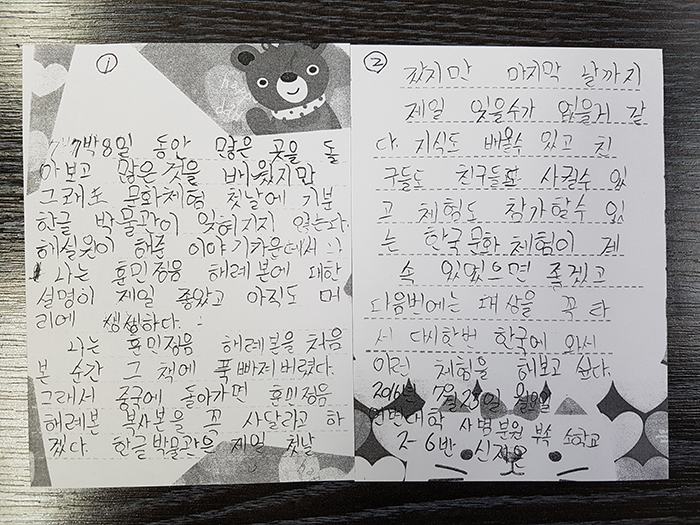 ①
7박8일 동안 많은 곳을 돌
아보고 많은것을 배웠지만
그래도 문화체험 첫날에 기분
한글 박물관이 잊혀지지 않는다.
해설원이 해준 이야기 가운데서
나는 훈민정음 해례본에 대한
설명이 제일 좋았고 아직도 머
리에 생생하다.
나는 훈민정음 해례본을 처음
본 순간 그 책에 푹 빠져버렸다.
그래서 중국에 돌아가면 훈민정음
해례본 복사본을 꼭 사달라고 하
겠다. 한글박물관은 제일 첫날
②
갔지만 마지막 날까지
제일 잊을수가 없을거 같
다. 지식도 배울수 있고 친
구들도 친구들과 사귈수 있
고 체험도 참가할수 있
는 한국문화 체험이 계
속 있었으면 좋겠고
다음번에는 대상을 꼭 타
서 다시한번 한국에 와서
이런 체험을 해보고 싶다.
2016년 7월25일 월요일
연변대학 사범분원 부속 소학교
2-6반